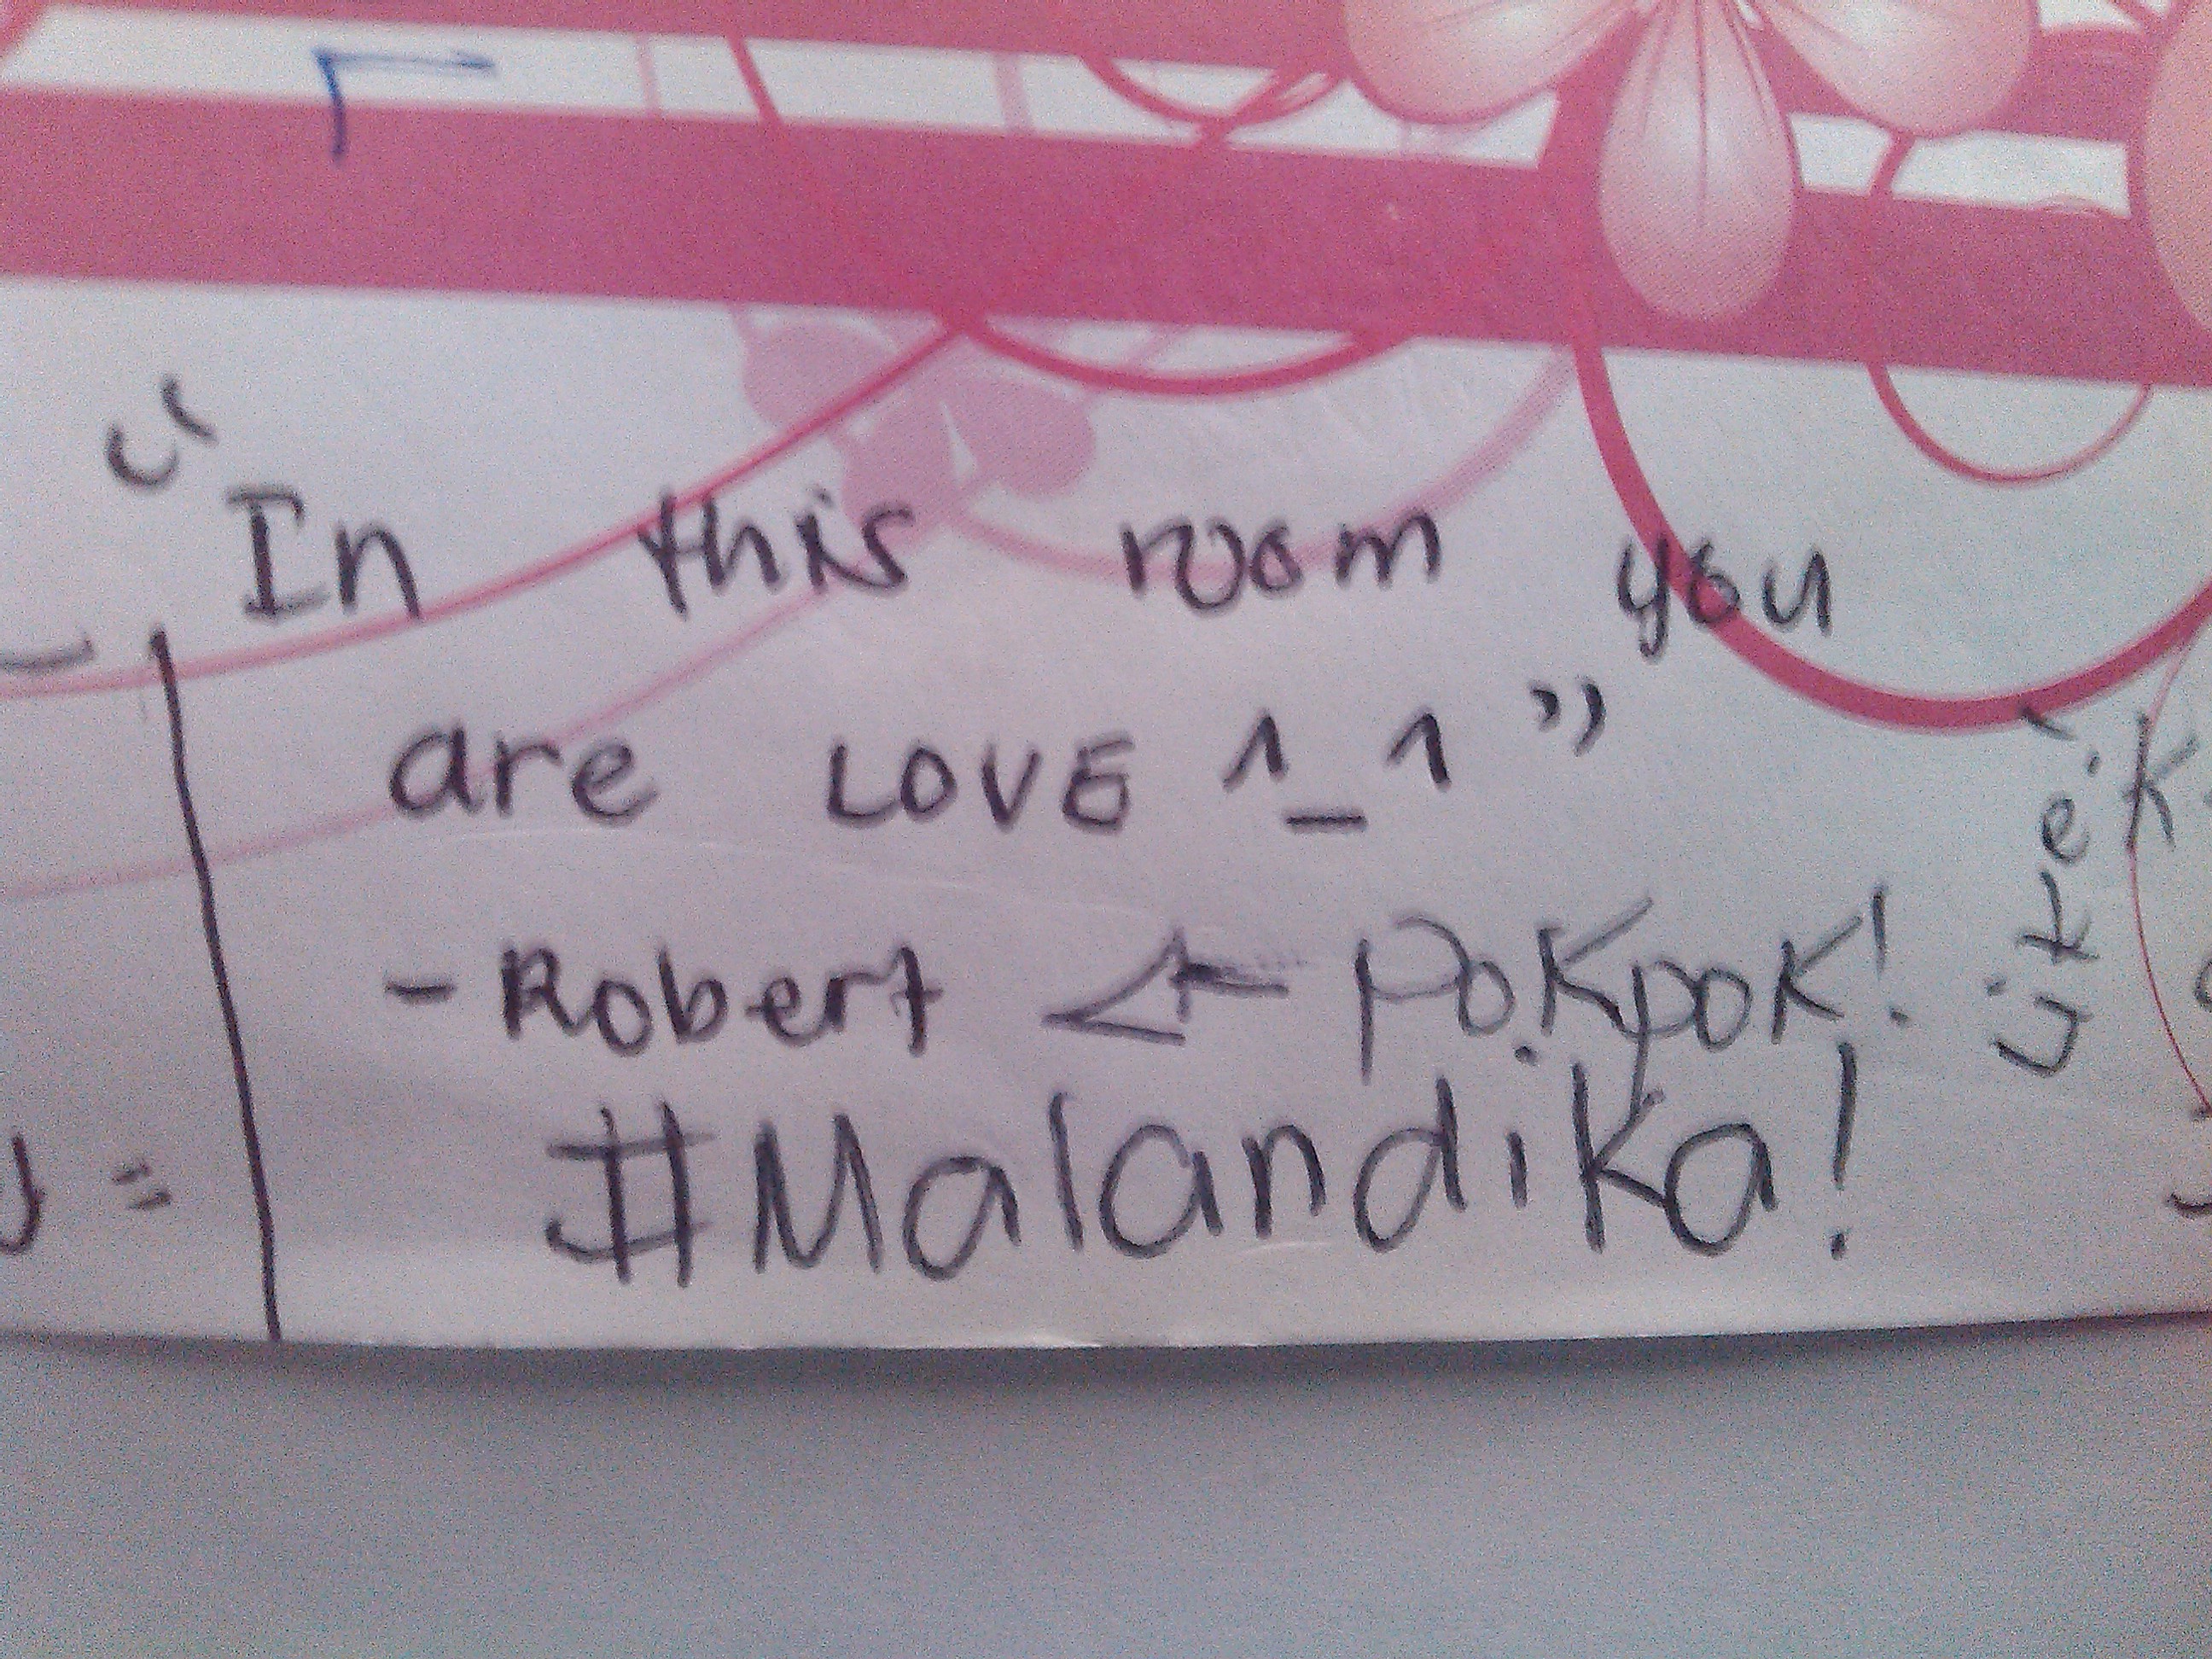 "In this room you
are LOVE ^_^"
- Robert ← POKPOK!
#Malandika!